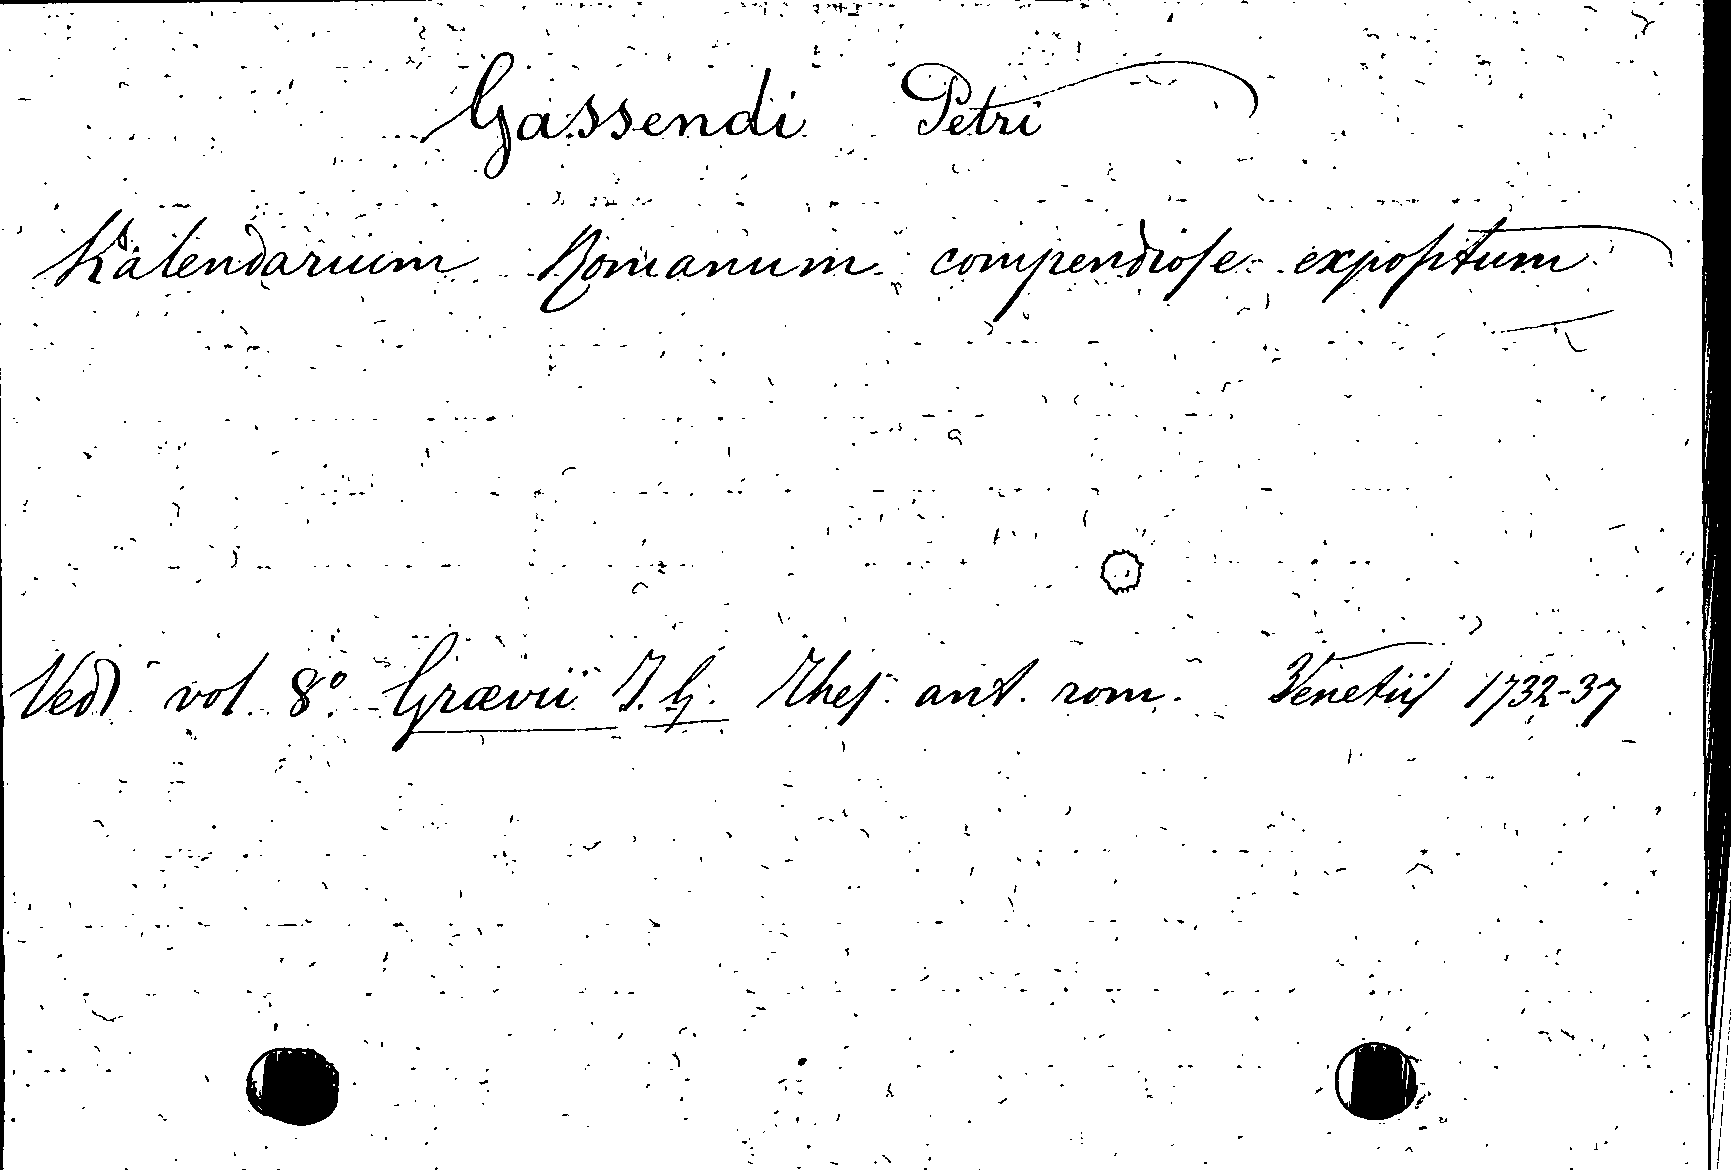 Gassendi Petri
Kalendarium Romanum compendiose expositum
Vedi vol. 8° Grævii J. G. Thes. ant. rom. Venetiis 1732-37